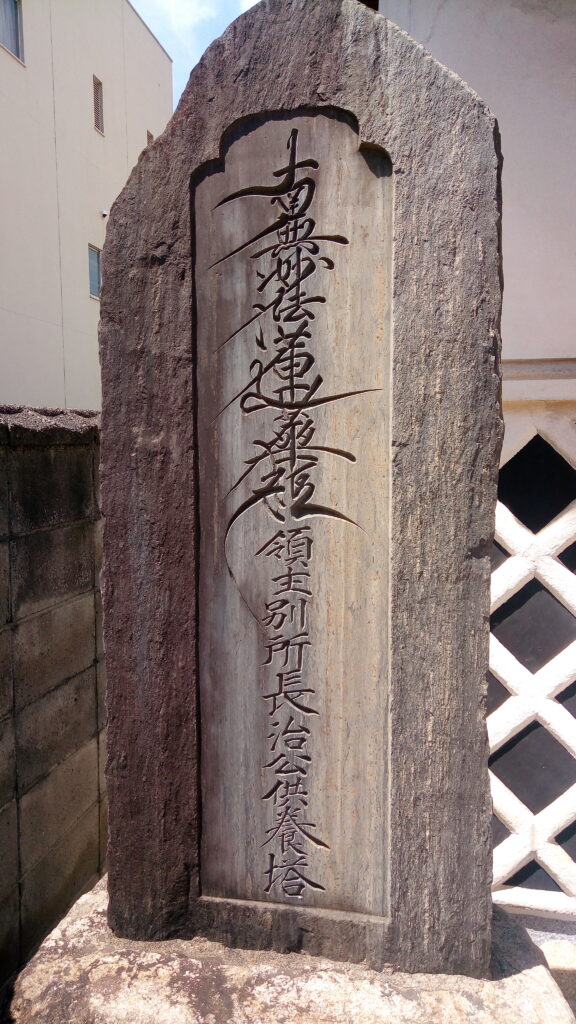 南無妙法蓮華経領主別所長治公供養塔